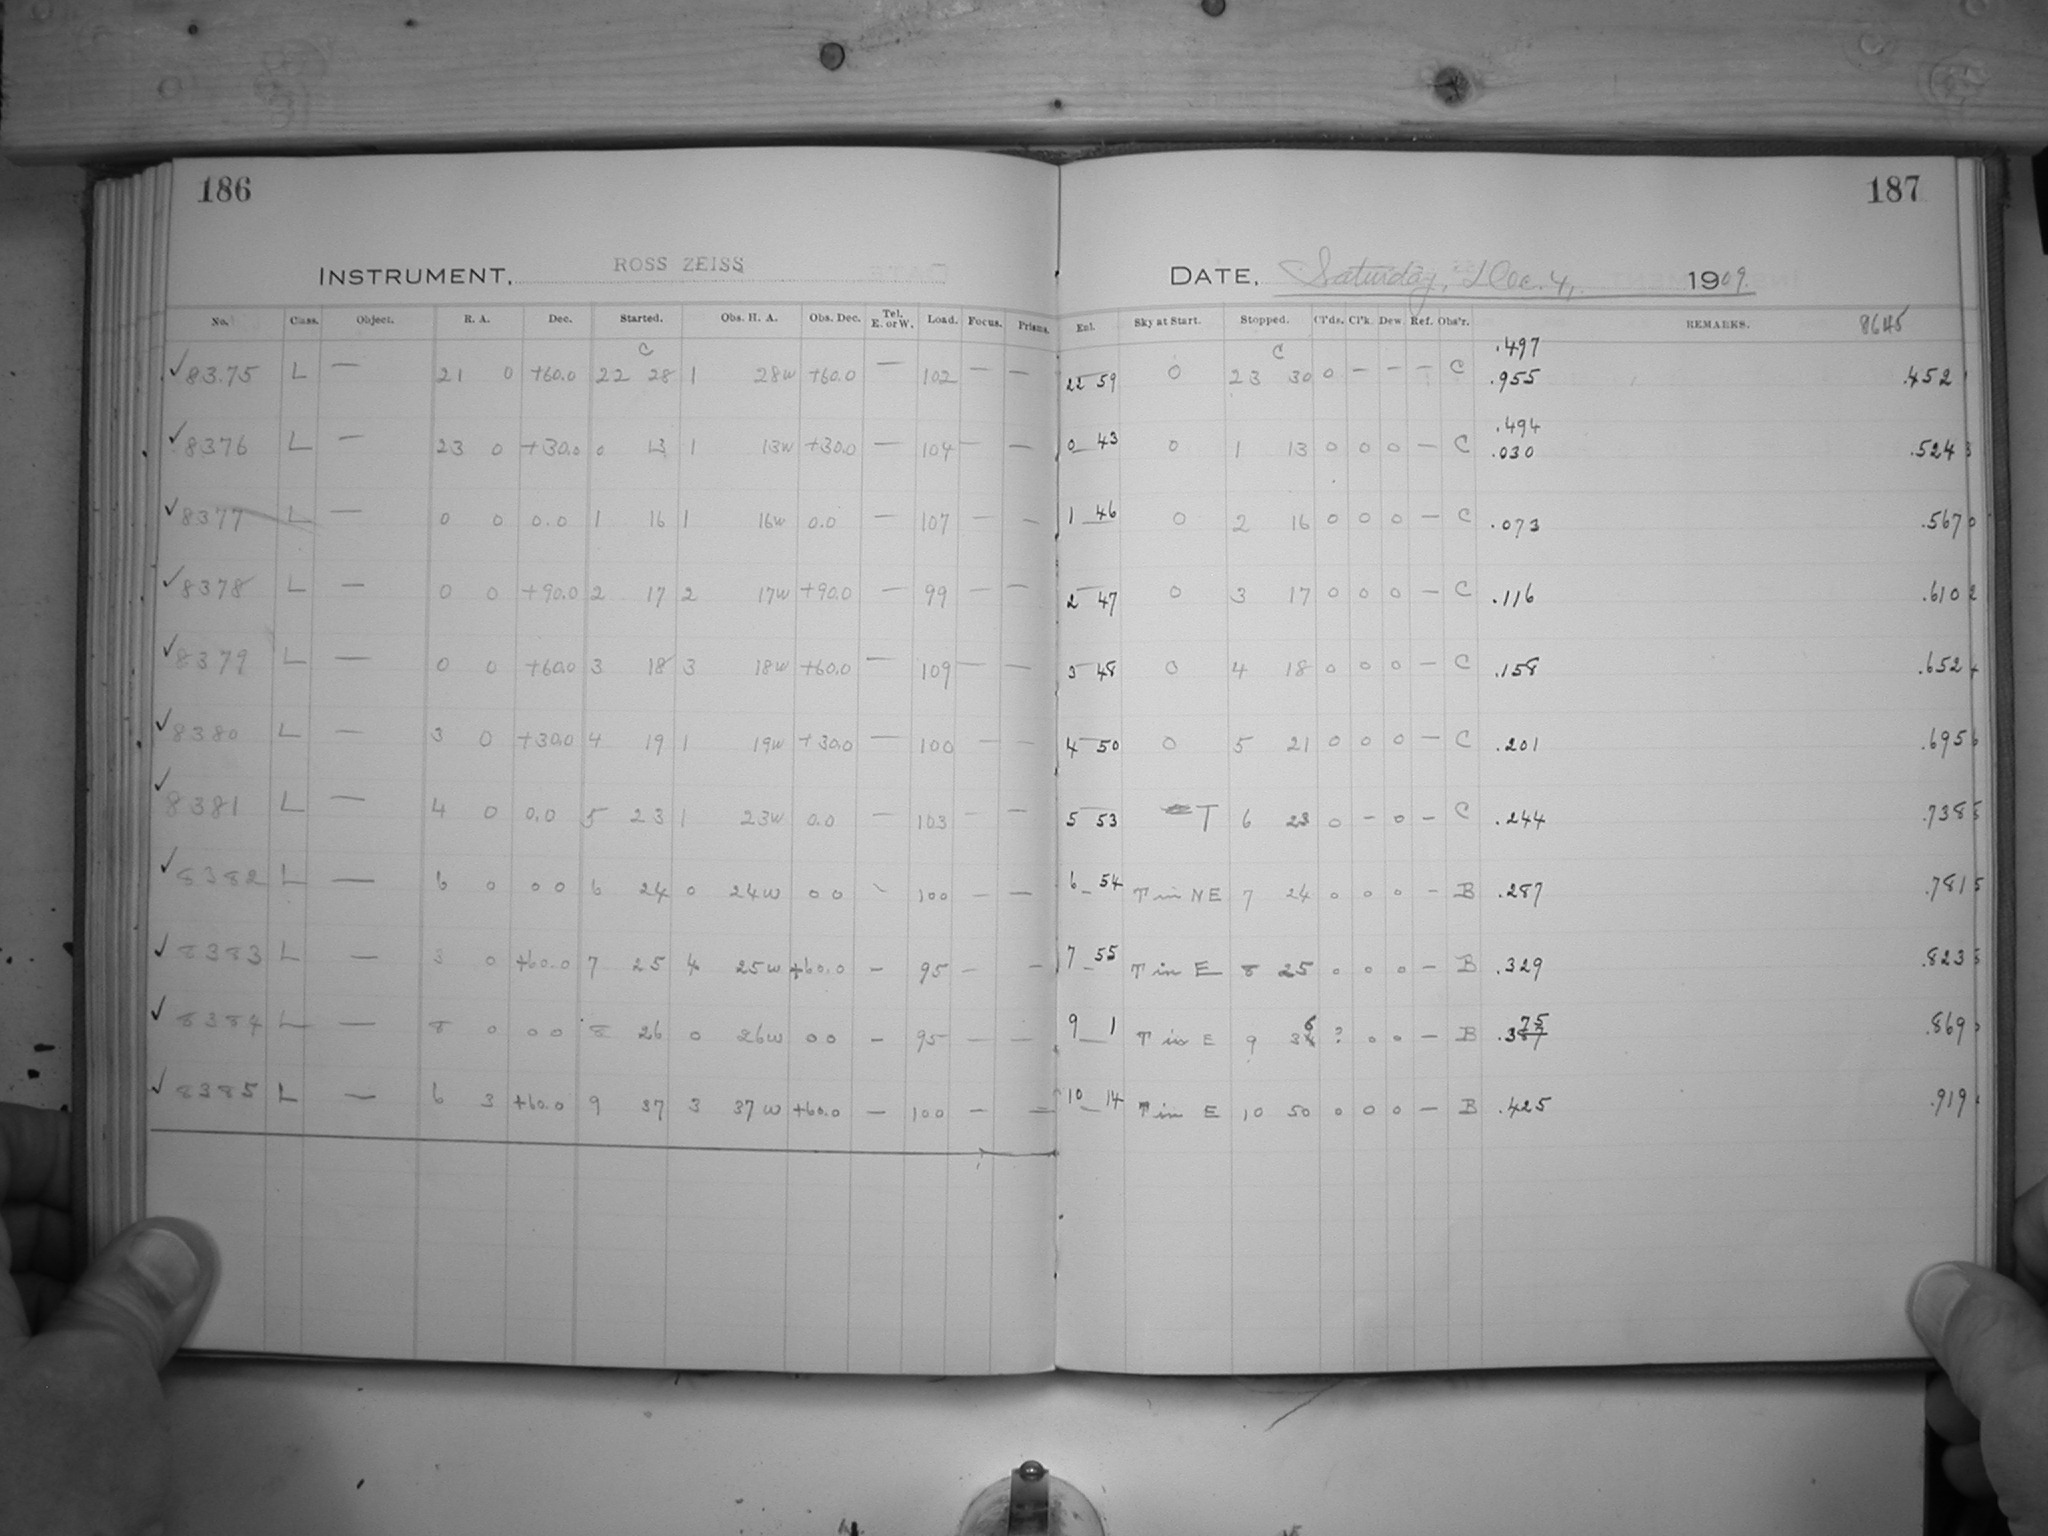 186
187
INSTRUMENT, ROSS ZEISS
DATE, Saturday, Dec. 4, 1909.
No. Class. Object. R. A. Dec. Started. Obs. H. A. Obs. Dec. Tel. E. or W. Load. Focus. Prisms. Exl. Sky at Start. Stopped. Cl'ds. Cl'k. Dew. Ref. Obs'r. REMARKS. 8645
C C .497
✓ 8375 L — 21 0 +60.0 22 28 1 28w +60.0 — 102 — — 22 59 0 23 30 0 — — — C .955 .4521
.494
✓ 8376 L — 23 0 +30.0 0 13 1 13w +30.0 — 104 — — 0 43 0 1 13 0 0 0 — C .030 .5243
✓ 8377 L — 0 0 0.0 1 16 1 16w 0.0 — 107 — — 1 46 0 2 16 0 0 0 — C .073 .5670
✓ 8378 L — 0 0 +90.0 2 17 2 17w +90.0 — 99 — — 2 47 0 3 17 0 0 0 — C .116 .6102
✓ 8379 L — 0 0 +60.0 3 18 3 18w +60.0 — 109 — — 3 48 0 4 18 0 0 0 — C .158 .6524
✓ 8380 L — 3 0 +30.0 4 19 1 19w +30.0 — 100 — — 4 50 0 5 21 0 0 0 — C .201 .6956
✓ 8381 L — 4 0 0.0 5 23 1 23w 0.0 — 103 — — 5 53 T 6 23 0 — 0 — C .244 .7385
✓ 8382 L — 6 0 0 0 6 24 0 24w 0 0 100 — — 6 54 T in NE 7 24 0 0 0 — B .287 .7815
✓ 8383 L — 3 0 +60.0 7 25 4 25w +60.0 — 95 — — 7 55 T in E 8 25 0 0 0 — B .329 .823
✓ 8384 L — 8 0 0 0 8 26 0 26w 0 0 — 95 — — 9 1 T in E 9 36 ? 0 0 — B .375 .869
✓ 8385 L — 6 3 +60.0 9 37 3 37w +60.0 — 100 — — 10 14 T in E 10 50 0 0 0 — B .425 .919